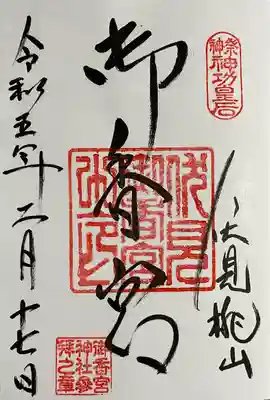 祭神
神功皇后
伏見桃山
御香宮
伏見
御香宮
令和五年二月十七日
御香宮
神社參
拜之章